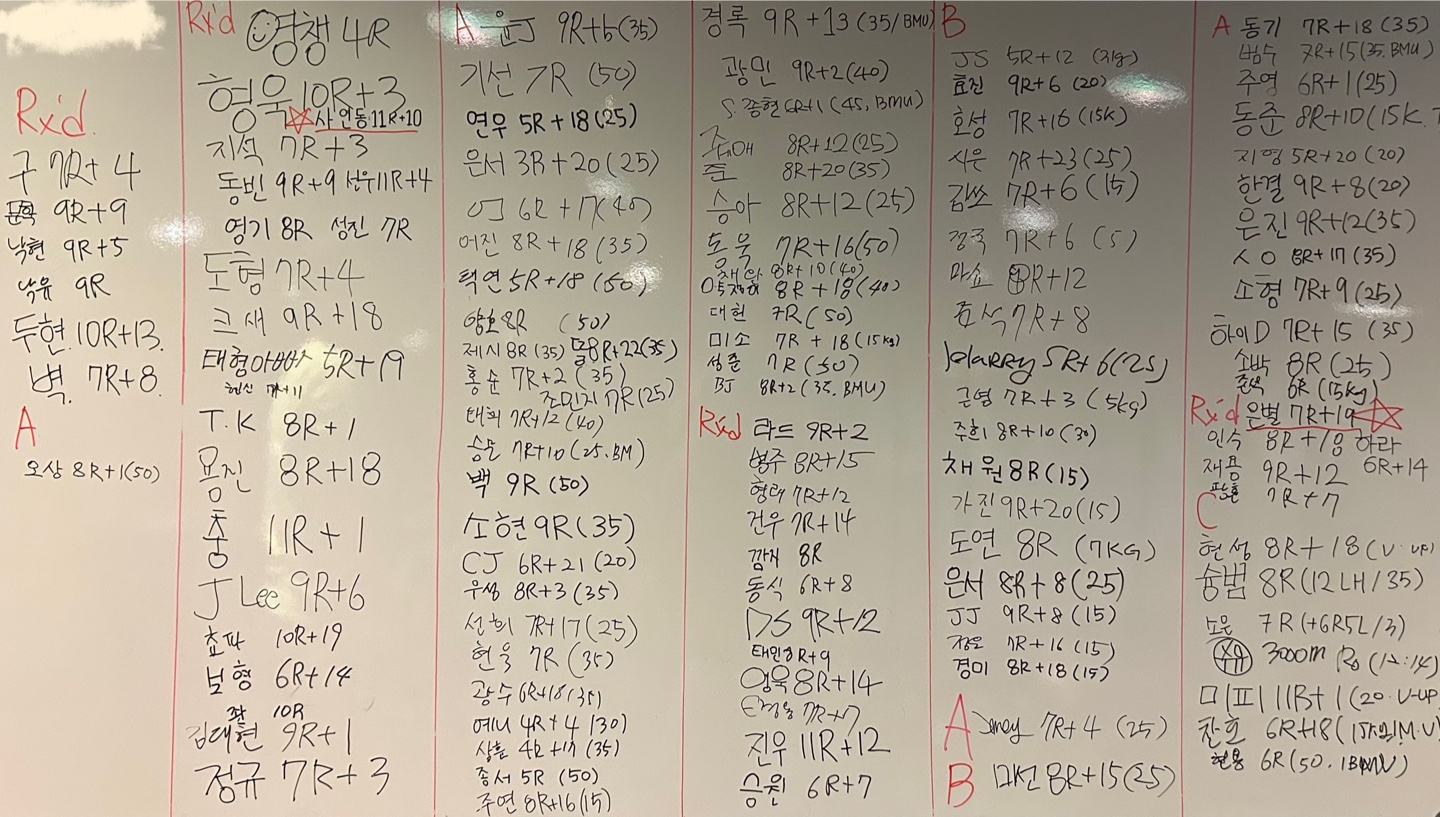 Rx'd.
구 7R+4
문학 9R+9
낙현 9R+5
낙유 9R
두현 10R+13.
벽. 7R+8
A
오상 8R+1(50)
Rx'd
영쟁 4R
형욱 10R+3
사 안동 11R+10
지석 7R+3
동빈 9R+9 선우 11R+4
영기 8R 성진 7R
도형 7R+4
크새 9R+18
태형아빠 5R+19
현신 7R+11
T.K 8R+1
용진 8R+18
충 11R+1
J Lee 9R+6
쵸파 10R+19
보형 6R+14
좌 10R
김대현 9R+1
정규 7R+3
A 윤J 9R+6(35)
기선 7R (50)
연우 5R+18(25)
은서 3R+20(25)
6R+17(40)
어진 8R+18(35)
택연 5R+18(50)
양호 8R (50)
제시 8R(35) 똘 8R+22(35)
홍순 7R+2(35)
조민지 7R(25)
태희 7R+12(40)
승모 7R+10(25.BM)
백 9R(50)
소현 9R(35)
CJ 6R+21(20)
우성 8R+3(35)
선희 7R+17(25)
현욱 7R(35)
광수 6R+18(35)
예니 4R+4(30)
상훈 4R+17(35)
종서 5R(50)
주연 8R+16(15)
경록 9R+13(35/BMU)
광민 9R+2(40)
S.종현 6R+1(45.BMU)
8R+12(25)
준 8R+20(35)
승아 8R+12(25)
동욱 7R+16(50)
8R+10(40)
8R+18(40)
대현 7R(50)
미소 7R+18(15kg)
성준 7R(50)
BJ 8R+2(35.BMU)
Rxd 라드 9R+2
병주 8R+15
형태 7R+12
건우 7R+14
깜지 8R
동식 6R+8
DS 9R+12
태민 8R+9
영욱 8R+14
7R+7
진우 11R+12
승원 6R+7
B
JS 5R+12
효진 9R+6(20)
호성 7R+16(15k)
시은 7R+23(25)
김쓰 7R+6(15)
정국 7R+6(5)
마쇼 8R+12
준석 7R+8
Harry 5R+6(25)
근영 7R+3(5kg)
주희 8R+10(30)
채원 8R(15)
가진 9R+20(15)
도연 8R(7KG)
은서 8R+8(25)
JJ 9R+8(15)
정은 7R+16(15)
경미 8R+18(15)
A 7R+4(25)
B 8R+15(25)
A 동기 7R+18(35)
범수 7R+15(35.BMU)
주영 6R+1(25)
동준 8R+10(15K.
지영 5R+20(20)
한결 9R+8(20)
은진 9R+12(35)
ㅅㅇ 8R+17(35)
소형 7R+9(25)
하이D 7R+15(35)
소박 8R(25)
준석 6R(15kg)
Rx'd 은별 7R+19
인숙 8R+18 하라
재용 9R+12 6R+14
7R+7
C
현성 8R+18(V-up)
숭범 8R(12LH/35)
7R(+6R5L/3)
3000m Ro(12:14)
미피 11R+1(20.V-UP
찬호 6R+18
현용 6R(50.1BMU)